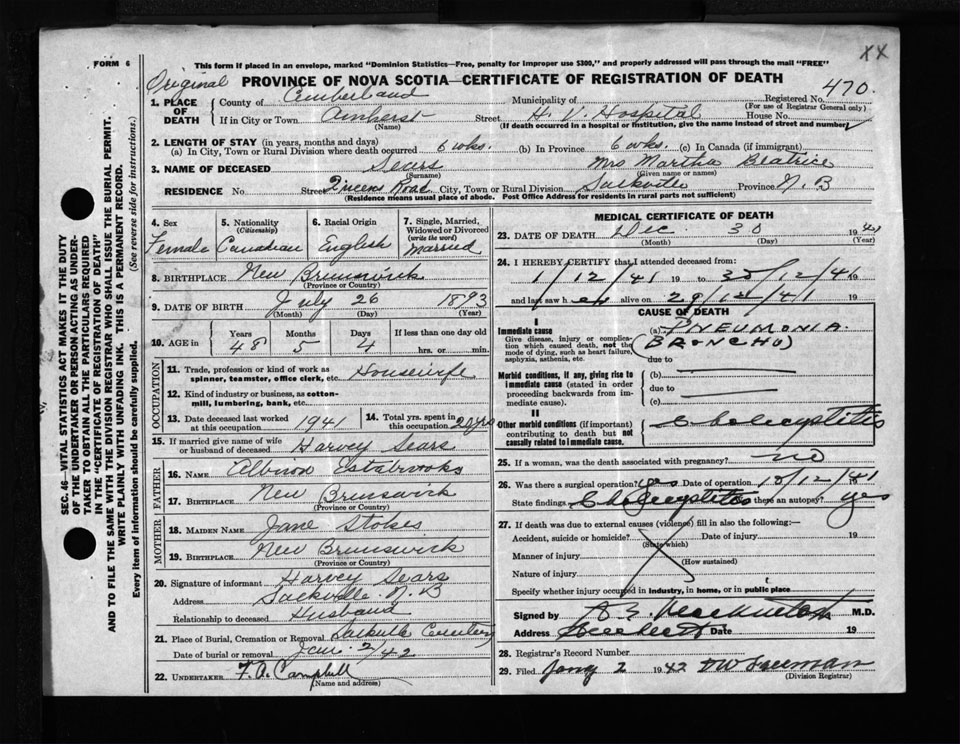 XX
FORM 6
This form if placed in an envelope, marked "Dominion Statistics—Free, penalty for improper use $300," and properly addressed will pass through the mail "FREE"
Original
PROVINCE OF NOVA SCOTIA—CERTIFICATE OF REGISTRATION OF DEATH
470.
1. PLACE OF DEATH
County of Cumberland Municipality of Registered No.
(For use of Registrar General only)
If in City or Town Amherst Street H. V. Hospital House No.
(Name) (If death occurred in a hospital or institution, give the name instead of street and number)
2. LENGTH OF STAY (in years, months and days)
(a) In City, Town or Rural Division where death occurred 6 wks. (b) In Province 6 wks. (c) In Canada (if immigrant)
3. NAME OF DECEASED Sears Mrs Martha Beatrice
(Surname) (Given name or names)
RESIDENCE No. Street Queens Road City, Town or Rural Division Sackville Province N. B
(Residence means usual place of abode. Post Office Address for residents in rural parts not sufficient)
4. Sex 5. Nationality 6. Racial Origin 7. Single, Married, Widowed or Divorced
(Citizenship) (write the word)
Female Canadian English Married
8. BIRTHPLACE New Brunswick
(Province or Country)
9. DATE OF BIRTH July 26 1893
(Month) (Day) (Year)
10. AGE in Years Months Days If less than one day old
48 5 4 hrs. or min.
OCCUPATION
11. Trade, profession or kind of work as spinner, teamster, office clerk, etc. Housewife
12. Kind of industry or business, as cotton-mill, lumbering, bank, etc.
13. Date deceased last worked at this occupation 1941 14. Total yrs. spent in this occupation 20 yrs
15. If married give name of wife or husband of deceased Harvey Sears
FATHER
16. NAME Albion Estabrooks
17. BIRTHPLACE New Brunswick
(Province or Country)
MOTHER
18. MAIDEN NAME Jane Stokes
19. BIRTHPLACE New Brunswick
(Province or Country)
20. Signature of informant Harvey Sears
Address Sackville N. B
Relationship to deceased Husband
21. Place of Burial, Cremation or Removal Sackville
Date of burial or removal Jan. 2/42
22. UNDERTAKER F. A. Campbell
(Name and address)
MEDICAL CERTIFICATE OF DEATH
23. DATE OF DEATH Dec. 30 1941
(Month) (Day) (Year)
24. I HEREBY CERTIFY that I attended deceased from:
1/12/41 19 to 30/12/41 19
and last saw her alive on 29/12/41 19
CAUSE OF DEATH
I
Immediate cause (a) PNEUMONIA
Give disease, injury or complication which caused death, not the mode of dying, such as heart failure, asphyxia, asthenia, etc.
(BRONCHO)
due to
Morbid conditions, if any, giving rise to immediate cause (stated in order proceeding backwards from immediate cause).
(b)
due to
(c)
II
Other morbid conditions (if important) contributing to death but not causally related to immediate cause.
Cholecystitis
25. If a woman, was the death associated with pregnancy? no
26. Was there a surgical operation? yes Date of operation 10/12/41
State findings Cholecystitis Was there an autopsy? yes
27. If death was due to external causes (violence) fill in also the following:—
Accident, suicide or homicide? Date of injury 19
(State which)
Manner of injury
(How sustained)
Nature of injury
Specify whether injury occurred in industry, in home, or in public place
Signed by M.D.
Address Date 19
28. Registrar's Record Number
29. Filed 2 1942
(Division Registrar)
SEC. 46—VITAL STATISTICS ACT MAKES IT THE DUTY
OF THE UNDERTAKER OR PERSON ACTING AS UNDER-
TAKER TO OBTAIN ALL THE PARTICULARS REQUIRED
IN THE "CERTIFICATE OF REGISTRATION OF DEATH"
AND TO FILE THE SAME WITH THE DIVISION REGISTRAR WHO SHALL ISSUE THE BURIAL PERMIT.
WRITE PLAINLY WITH UNFADING INK. THIS IS A PERMANENT RECORD.
Every item of information should be carefully supplied. (See reverse side for instructions.)